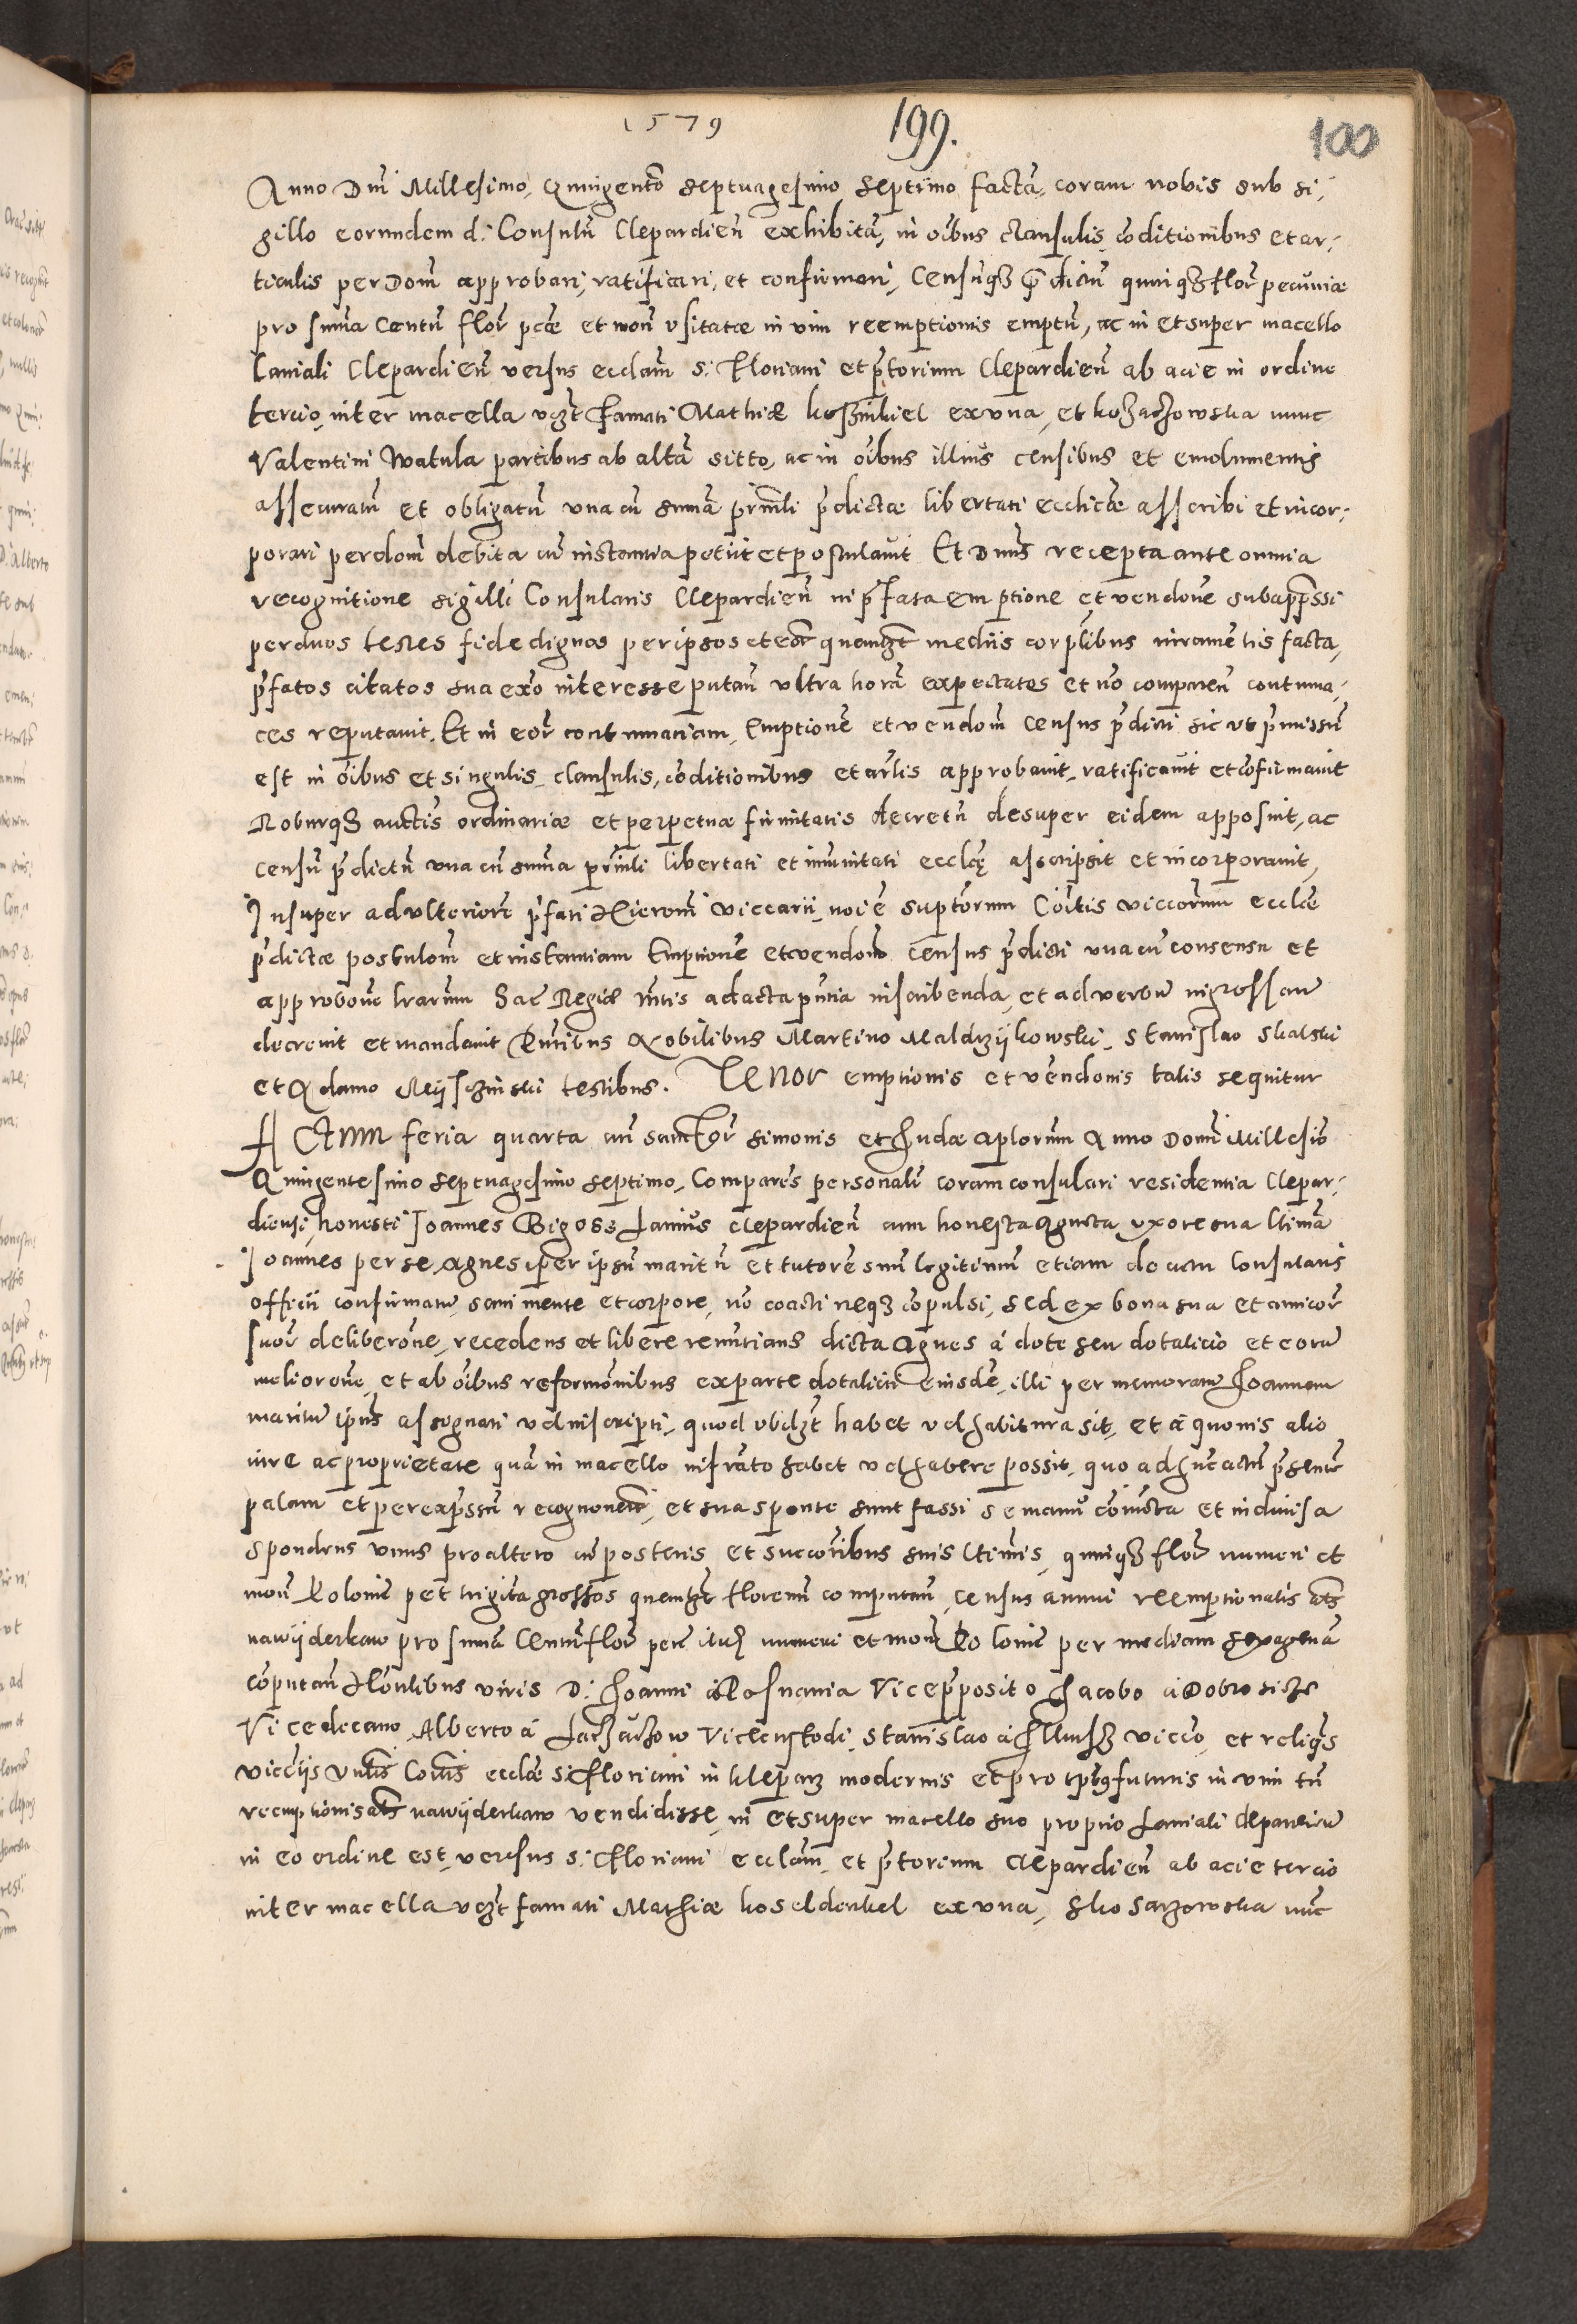 1579 199. 100
Anno Dnī Millesimo, Quingentō septuagesimo septimo factā, coram nobis sub si-
gillo eorundem d. Consulū Clepardien̄ exhibitā, in oībus clausulis, cōditionibus et ar-
ticulis per Dom̄ approbari, ratificari, et confirmari, Censūqȝ p̄dictū quinqȝ flor̄ pecuniæ
pro summa Centū flor̄ pcæ et mon̄ usitatæ in vim reemptionis emptū, ac in et super macello
Laniali Clepardien̄ versus eccłam S. Floriani et p̄torium Clepardien̄ ab acie in ordine
tercio, inter macella vȝt famati Mathiæ ex una, et nunc
Valentini Watula partibus ab altā sitto, ac in oībus illius censibus et emolumentis
assecuratū et obligatū una cū summā prīnli p̄dictæ libertati eccliæ asscribi et incor-
porari per dom̄ debita cū instantia petiit et postulavit Et Dnūs recepta ante omnia
recognitione sigilli Consularis Clepardien̄ in p̄fata emptione et vendone subapp̄ssi
per duos testes fide dignos per ipsos et eor̄ quemlȝt mediis corpłibus iuramētis facta,
p̄fatos citatos sua exō interesse putan̄ ultra horā expectatos et nō comparen̄ contuma-
ces reputavit. Et in eor̄ contumatiam, Emptionē et vendom̄ census p̄dicti sic ut p̄missū
est in oībus et singulis clausulis, cōditionibus et artlis approbavit, ratificavit et cōfirmavit
Roburqȝ auctis ordinariæ et perpetuæ firmitatis decretū desuper eidem apposuit, ac
censū p̄dictū una cū summa prīnli libertati et imunitati ecclę ascripsit et incorporavit,
Insuper ad ulteriorē p̄fati Hieronī viccarii, noīe suptōrum Cōitis viccōrum eccłæ
p̄dictæ postulom̄ et instantiam Emptionē et vendom̄ census p̄dicti una cū consensu et
approbone lrarum Sac̄ Regiæ mtis ad acta pn̄tia inscribenda, et ad verbū ingrossari
decrevit et mandavit Pn̄tibus Nobilibus Martino Stanislao Skalski
et Adamo testibus. Tenor emptionis et vendonis talis sequitur
Actum feria quarta an̄ sanctor̄ Simonis et Judæ aplorum Anno Domī Millesiō
Quingentesimo septuagesimo septimo, Comparēs personalr̄ coram consulari residentia Clepar-
diensi, honesti Joannes Bigoss Lanius clepardien̄ cum honesta Agneta uxore sua ltīma
Joannes per se, Agnes per ipsū maritū et tutorē suū legitimū etiam de actu Consularis
officii confirmatū, sani mente et corpore, nō coacti neqȝ cōpulsi, sed ex bona sua et amicor̄
suor̄ deliberōne, recedens et libere renūtians dicta Agnes à dote seu dotalicio et eorū
meliorōne, et ab oībus reformōnibus ex parte dotalicii eiusdē, illi per memoratū Joannem
maritū ipsius assignati vel inscripti, quod ubilȝt habet vel habitura sit, et à quovis alio
iure ac proprietate quā in macello infrāto habet vel habere possit, quo ad hūc actū p̄sentē
palam et per exp̄ssū recognoverūt, et sua sponte sunt fassi se manū coniūcta et indivisa
spondens unus pro altero cū posteris et succōribus suis ltīmis, quinqȝ flor̄ numeri et
mon̄ Polonic̄ per trigīta grossos quemlȝt florenū computan̄, census annui reemptionalis ał̄s
nawijderkaw pro summā Centū flor̄ pcæ itidȝ numeri et mon̄ Polonic̄ per mediam sexagenā
cōputan̄ Honlibus viris D. Joanni à Posnania Vicep̄posito Jacobo à
Vicedecano, Alberto à Vicecustodi, Stanislao à viccō, et reliq̄s
viccīis Comīs eccłæ S. Floriani in Kleparz modernis et pro tpr̄e futuris in vim tū
reemptionis ał̄s nawijderkaw vendidisse, in et super macello suo proprio Laniali Clepardien̄
in eo ordine est, versus S. Floriani eccłam, et p̄torium Clepardien̄ ab acie tercio
inter macella vȝt famati Mathiæ ex una, nūc